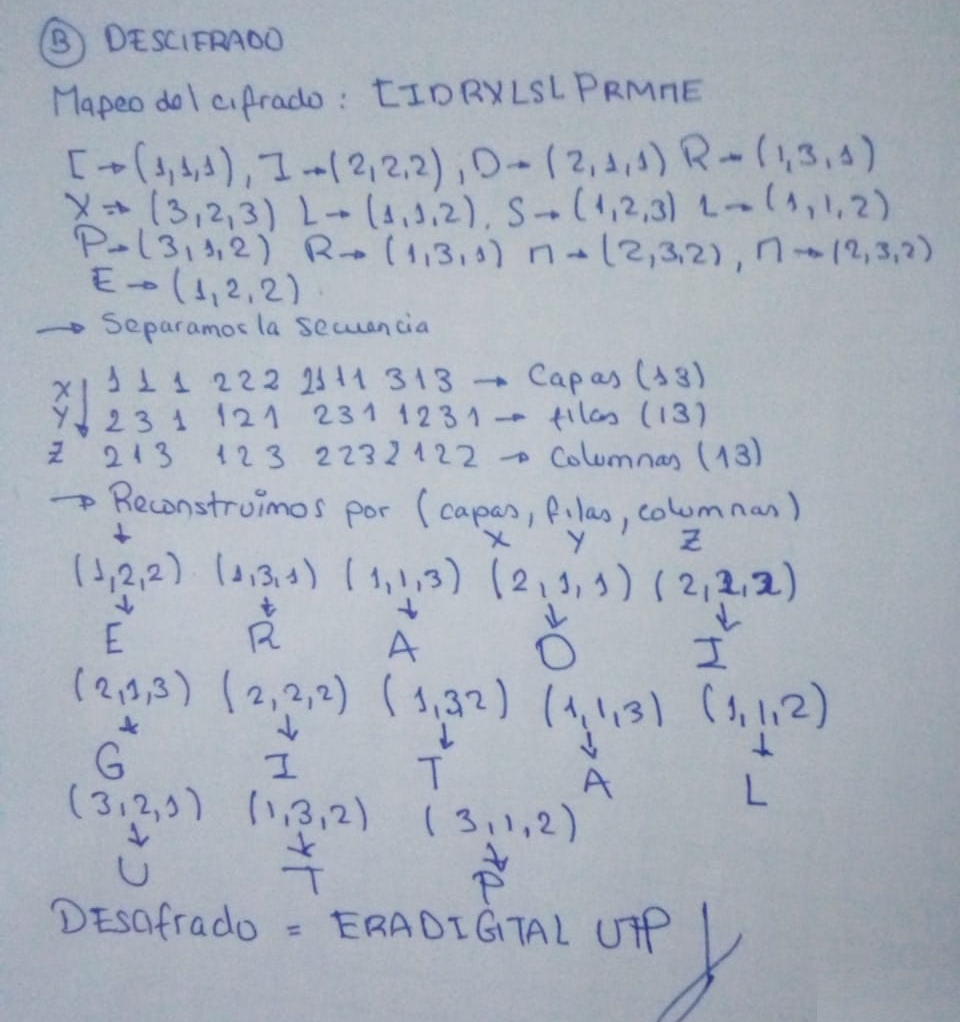 B DESCIFRADO
Mapeo del cifrado : [IDRXLSLPRMME
[ → (1,1,1), I → (2,2,2), D → (2,1,1) R → (1,3,1)
X → (3,2,3) L → (1,1,2). S → (1,2,3) L → (1,1,2)
P → (3,1,2) R → (1,3,1) M → (2,3,2), M → (2,3,2)
E → (1,2,2).
→ Separamos la secuencia
X 1 1 1 222 2111 313 → Capas (13)
Y 2 3 1 121 231 1231 → filas (13)
Z 213 123 2232122 → Columnas (13)
→ Reconstruimos por (capas, filas, columnas)
X Y Z
(1,2,2) (1,3,1) (1,1,3) (2,1,1) (2,2,2)
E R A D I
(2,1,3) (2,2,2) (1,3,2) (1,1,3) (1,1,2)
G I T A L
(3,2,1) (1,3,2) (3,1,2)
U T P
DEScifrado = ERADIGITAL UTP